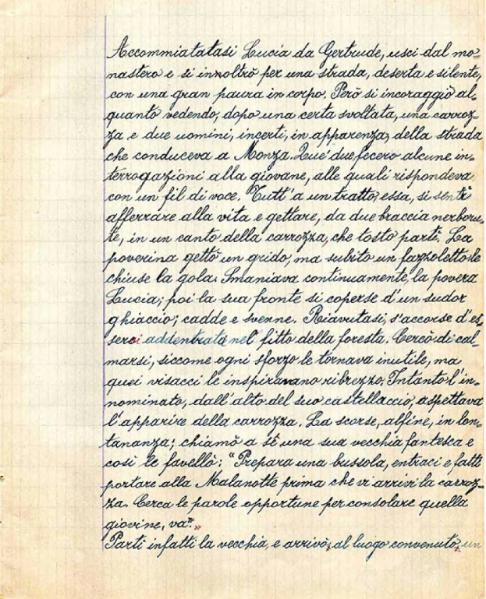 Accommiatatasi Lucia da Gertrude, uscì dal mo-
nastero e si inoltrò per una strada, deserta e silente,
con una gran paura in corpo. Però si incoraggiò al-
quanto vedendo, dopo una certa svoltata, una carroz-
za e due uomini, incerti, in apparenza, della strada
che conduceva a Monza. Que' due fecero alcune in-
terrogazioni alla giovane, alle quali rispondeva
con un fil di voce. Tutt'a un tratto, essa, si sentì
afferrare alla vita e gettare, da due braccia nerboru-
te, in un canto della carrozza, che tosto partì. La
poverina gettò un grido, ma subito un fazzoletto le
chiuse la gola. Smaniava continuamente, la povera
Lucia; poi la sua fronte si coperse d'un sudor
ghiaccio; cadde e svenne. Riavutasi, s'accorse d'es-
serci addentrata nel fitto della foresta. Cercò di cal-
marsi, siccome ogni sforzo le tornava inutile, ma
quei visacci le inspiravano ribrezzo. Intanto l'in-
nominato, dall'alto del suo castellaccio, aspettava
l'apparire della carrozza. La scorse, alfine, in lon-
tananza; chiamò a sè una sua vecchia fantesca e
così le favellò: "Prepara una bussola, entraci e fatti
portare alla Malanotte prima che vi arrivi la carroz-
za. Cerca le parole opportune per consolare quella
giovine, va".
Partì infatti la vecchia, e arrivò, al luogo convenuto, un